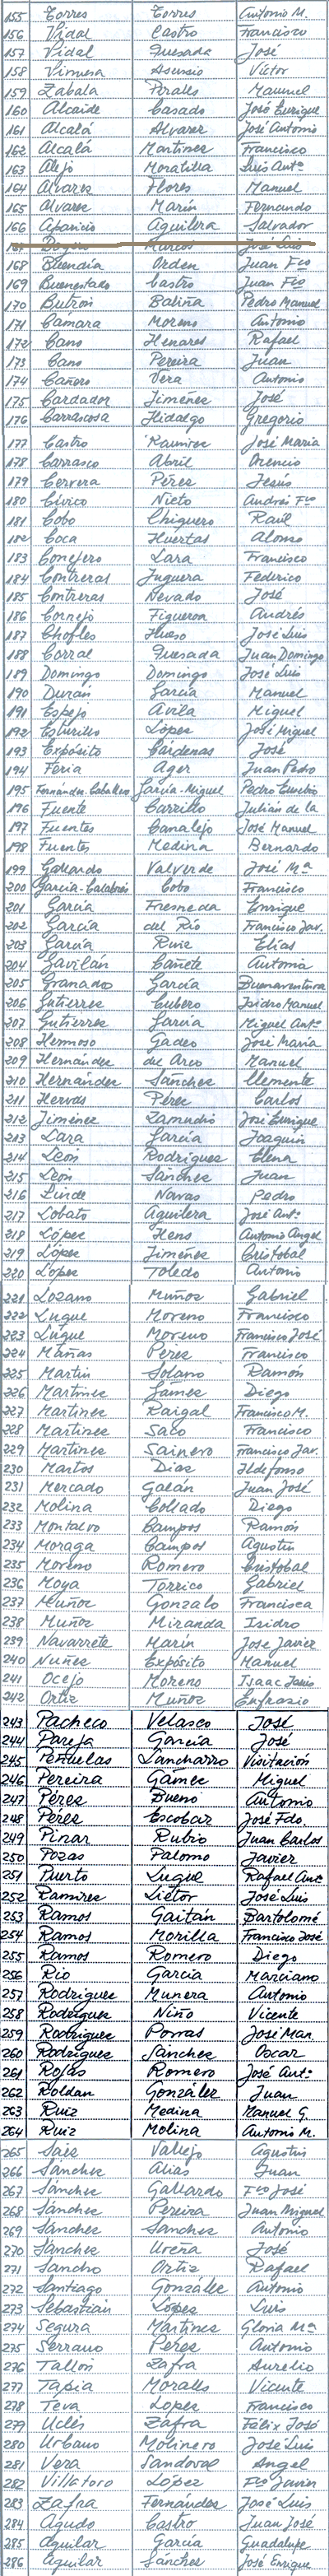 155 Torres Torres Antonio M.
156 Vidal Castro Francisco
157 Vidal Quesada José
158 Asensio Víctor
159 Zabala Perales Manuel
160 Alcaide Casado José Enrique
161 Alcalá Alvarez José Antonio
162 Alcalá Martínez Francisco
163 Alejo Moratilla Luis Antº
164 Alvarez Flores Manuel
165 Alvarez Marín Fernando
166 Aparicio Aguilera Salvador
167 Marcos José Luis
168 Buendía Orden Juan Fco
169 Buenestado Castro Juan Fco
170 Butrón Baliña Pedro Manuel
171 Cámara Moreno Antonio
172 Cano Henares Rafael
173 Cano Pereira Juan
174 Cañero Vera Antonio
175 Cardador Jiménez José
176 Carrascosa Hidalgo Gregorio
177 Castro Ramírez José María
178 Carrasco Abril Orencio
179 Cervera Pérez Jesús
180 Cívico Nieto Andrés Fco
181 Cobo Chiquero Raúl
182 Coca Huertas Alonso
183 Conejero Lara Francisco
184 Contreras Juguera Federico
185 Contreras Nevado José
186 Cornejo Figueroa Andrés
187 Chofles Hueso José Luis
188 Corral Quesada Juan Domingo
189 Domingo Domingo José Luis
190 Durán García Manuel
191 Espejo Avila Miguel
192 Esturillo López José Miguel
193 Expósito Cárdenas José
194 Feria Ager Juan Pedro
195 Fernández-Caballero García-Miguel Pedro Eusebio
196 Fuente Carrillo Julián de la
197 Fuentes Canalejo José Manuel
198 Fuentes Medina Bernardo
199 Gallardo Valverde José Mª
200 García-Calabrés Cobo Francisco
201 García Fresneda Enrique
202 García del Río Francisco Jav.
203 García Ruiz Elías
204 Gavilán Cañete Antonia
205 Granado García Buenaventura
206 Gutierrez Cubero Isidro Manuel
207 Gutierrez García Miguel Antº
208 Hermoso Gadeo José María
209 Hernández del Arco Manuel
210 Hernández Sánchez Clemente
211 Hervas Pérez Carlos
212 Jiménez Zamudio José Enrique
213 Lara García Joaquín
214 León Rodríguez Elena
215 León Sánchez Juan
216 Linde Navas Pedro
217 Lobato Aguilera José Antº
218 López Hens Antonio Angel
219 López Jiménez Cristóbal
220 López Toledo Antonio
221 Lozano Muñoz Gabriel
222 Luque Moreno Francisco
223 Luque Moreno Francisco José
224 Mañas Pérez Francisco
225 Martín Solano Ramón
226 Martínez Gámez Diego
227 Martínez Raigal Francisco M.
228 Martínez Saco Francisco
229 Martínez Sainero Francisco Jav.
230 Martos Díaz Ildefonso
231 Mercado Galán Juan José
232 Molina Collado Diego
233 Montalvo Campos Ramón
234 Moraga Campos Agustín
235 Moreno Romero Cristóbal
236 Moya Torrico Gabriel
237 Muñoz Gonzalo Francisca
238 Muñoz Miranda Isidro
239 Navarrete Marín Jose Javier
240 Nuñez Expósito Manuel
241 Ocejo Moreno Isaac Jesús
242 Ortiz Muñoz Eufrasio
243 Pacheco Velasco José
244 Pareja García José
245 Peñuelas Lancharro Visitación
246 Pereira Gámez Miguel
247 Pérez Bueno Antonio
248 Pérez Escobar José Fdo.
249 Pinar Rubio Juan Carlos
250 Pozas Palomo Javier
251 Puerto Luque Rafael Antº
252 Ramírez Lietor José Luis
253 Ramos Gaitán Bartolomé
254 Ramos Morilla Francisco José
255 Ramos Romero Diego
256 Rio García Marciano
257 Rodríguez Munera Antonio
258 Rodríguez Niño Vicente
259 Rodríguez Porras José Man.
260 Rodríguez Sánchez Oscar
261 Rojas Romero José Antº
262 Roldan González Juan
263 Ruiz Medina Manuel G.
264 Ruiz Molina Antonio M.
265 Sáez Vallejo Agustín
266 Sánchez Alías Juan
267 Sánchez Gallardo Fco José
268 Sánchez Pereira Juan Miguel
269 Sánchez Sánchez Antonio
270 Sánchez Ureña José
271 Sancho Ortiz Rafael
272 Santiago González Antonio
273 Sebastián López Luis
274 Segura Martínez Gloria Mª
275 Serrano Pérez Antonio
276 Tallón Zafra Aurelio
277 Tapia Morales Vicente
278 Teva López Francisco
279 Uclés Zafra Félix José
280 Urbano Molinero José Luis
281 Vera Sandoval Angel
282 Villatoro López Fco Javier
283 Zafra Fernández José Luis
284 Agudo Castro Juan José
285 Aguilar García Guadalupe
286 Aguilar Sánchez José Enrique